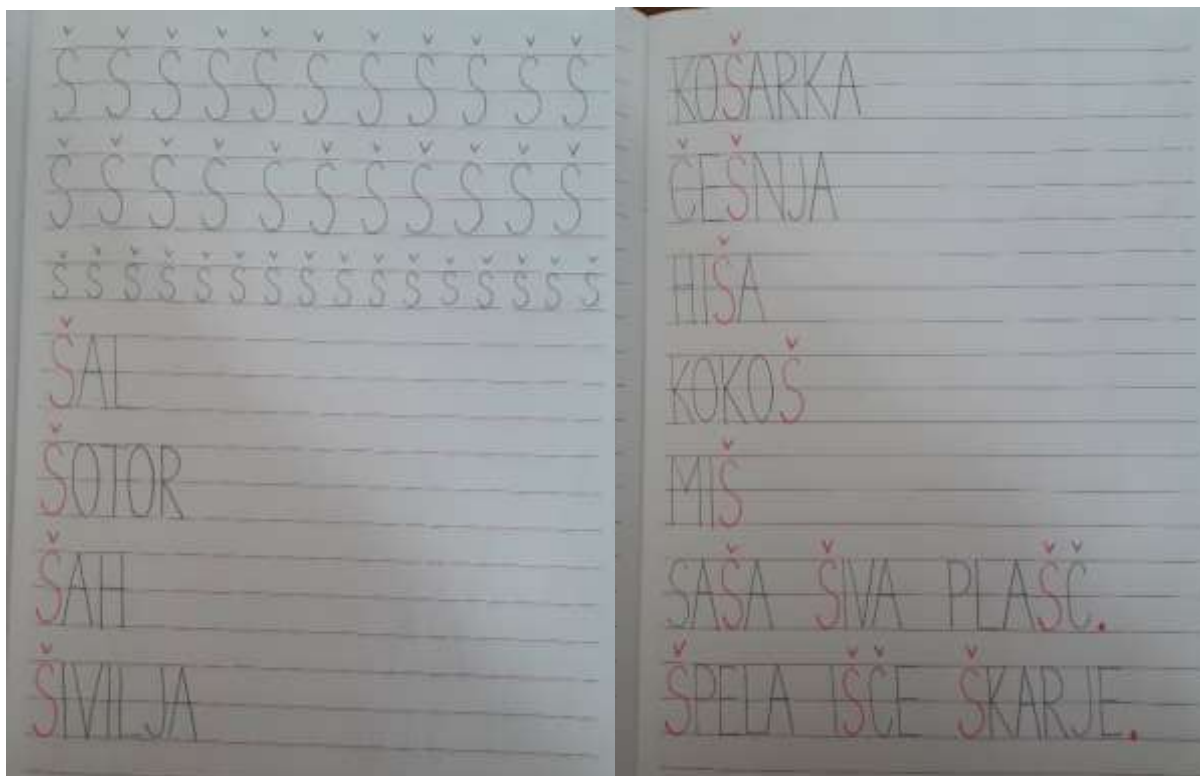 Š Š Š Š Š Š Š Š Š Š Š
Š Š Š Š Š Š Š Š Š Š Š
Š Š Š Š Š Š Š Š Š Š Š Š Š Š Š Š
ŠAL
ŠOTOR
ŠAH
ŠIVILJA
KOŠARKA
ČEŠNJA
HIŠA
KOKOŠ
MIŠ
SAŠA ŠIVA PLAŠČ.
ŠPELA IŠČE ŠKARJE.